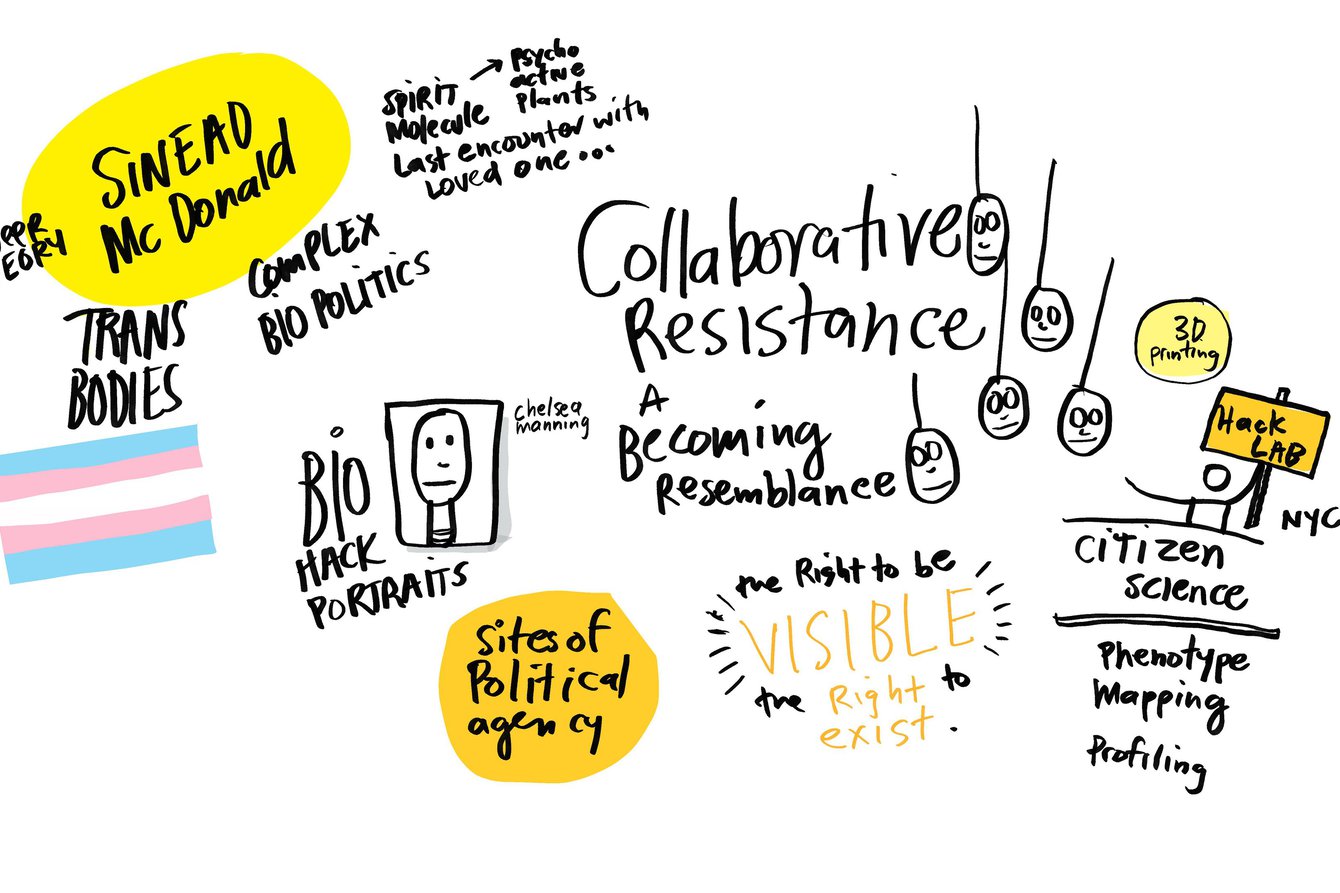 SINEAD
Mc Donald
SPiRiT
Molecule
Psycho
active
Plants
Last encounter with
Loved one...
COMPLEX
BIO POLITICS
TRANS
BODIES
Collaborative
Resistance
A
Becoming
Resemblance
3D
printing
Hack
LAB
NYC
CiTiZen
science
Phenotype
Mapping
Profiling
chelsea
manning
BiO
HACK
PORTRAiTS
Sites of
Political
agency
the Right to be
VISIBLE
the Right to
exist.